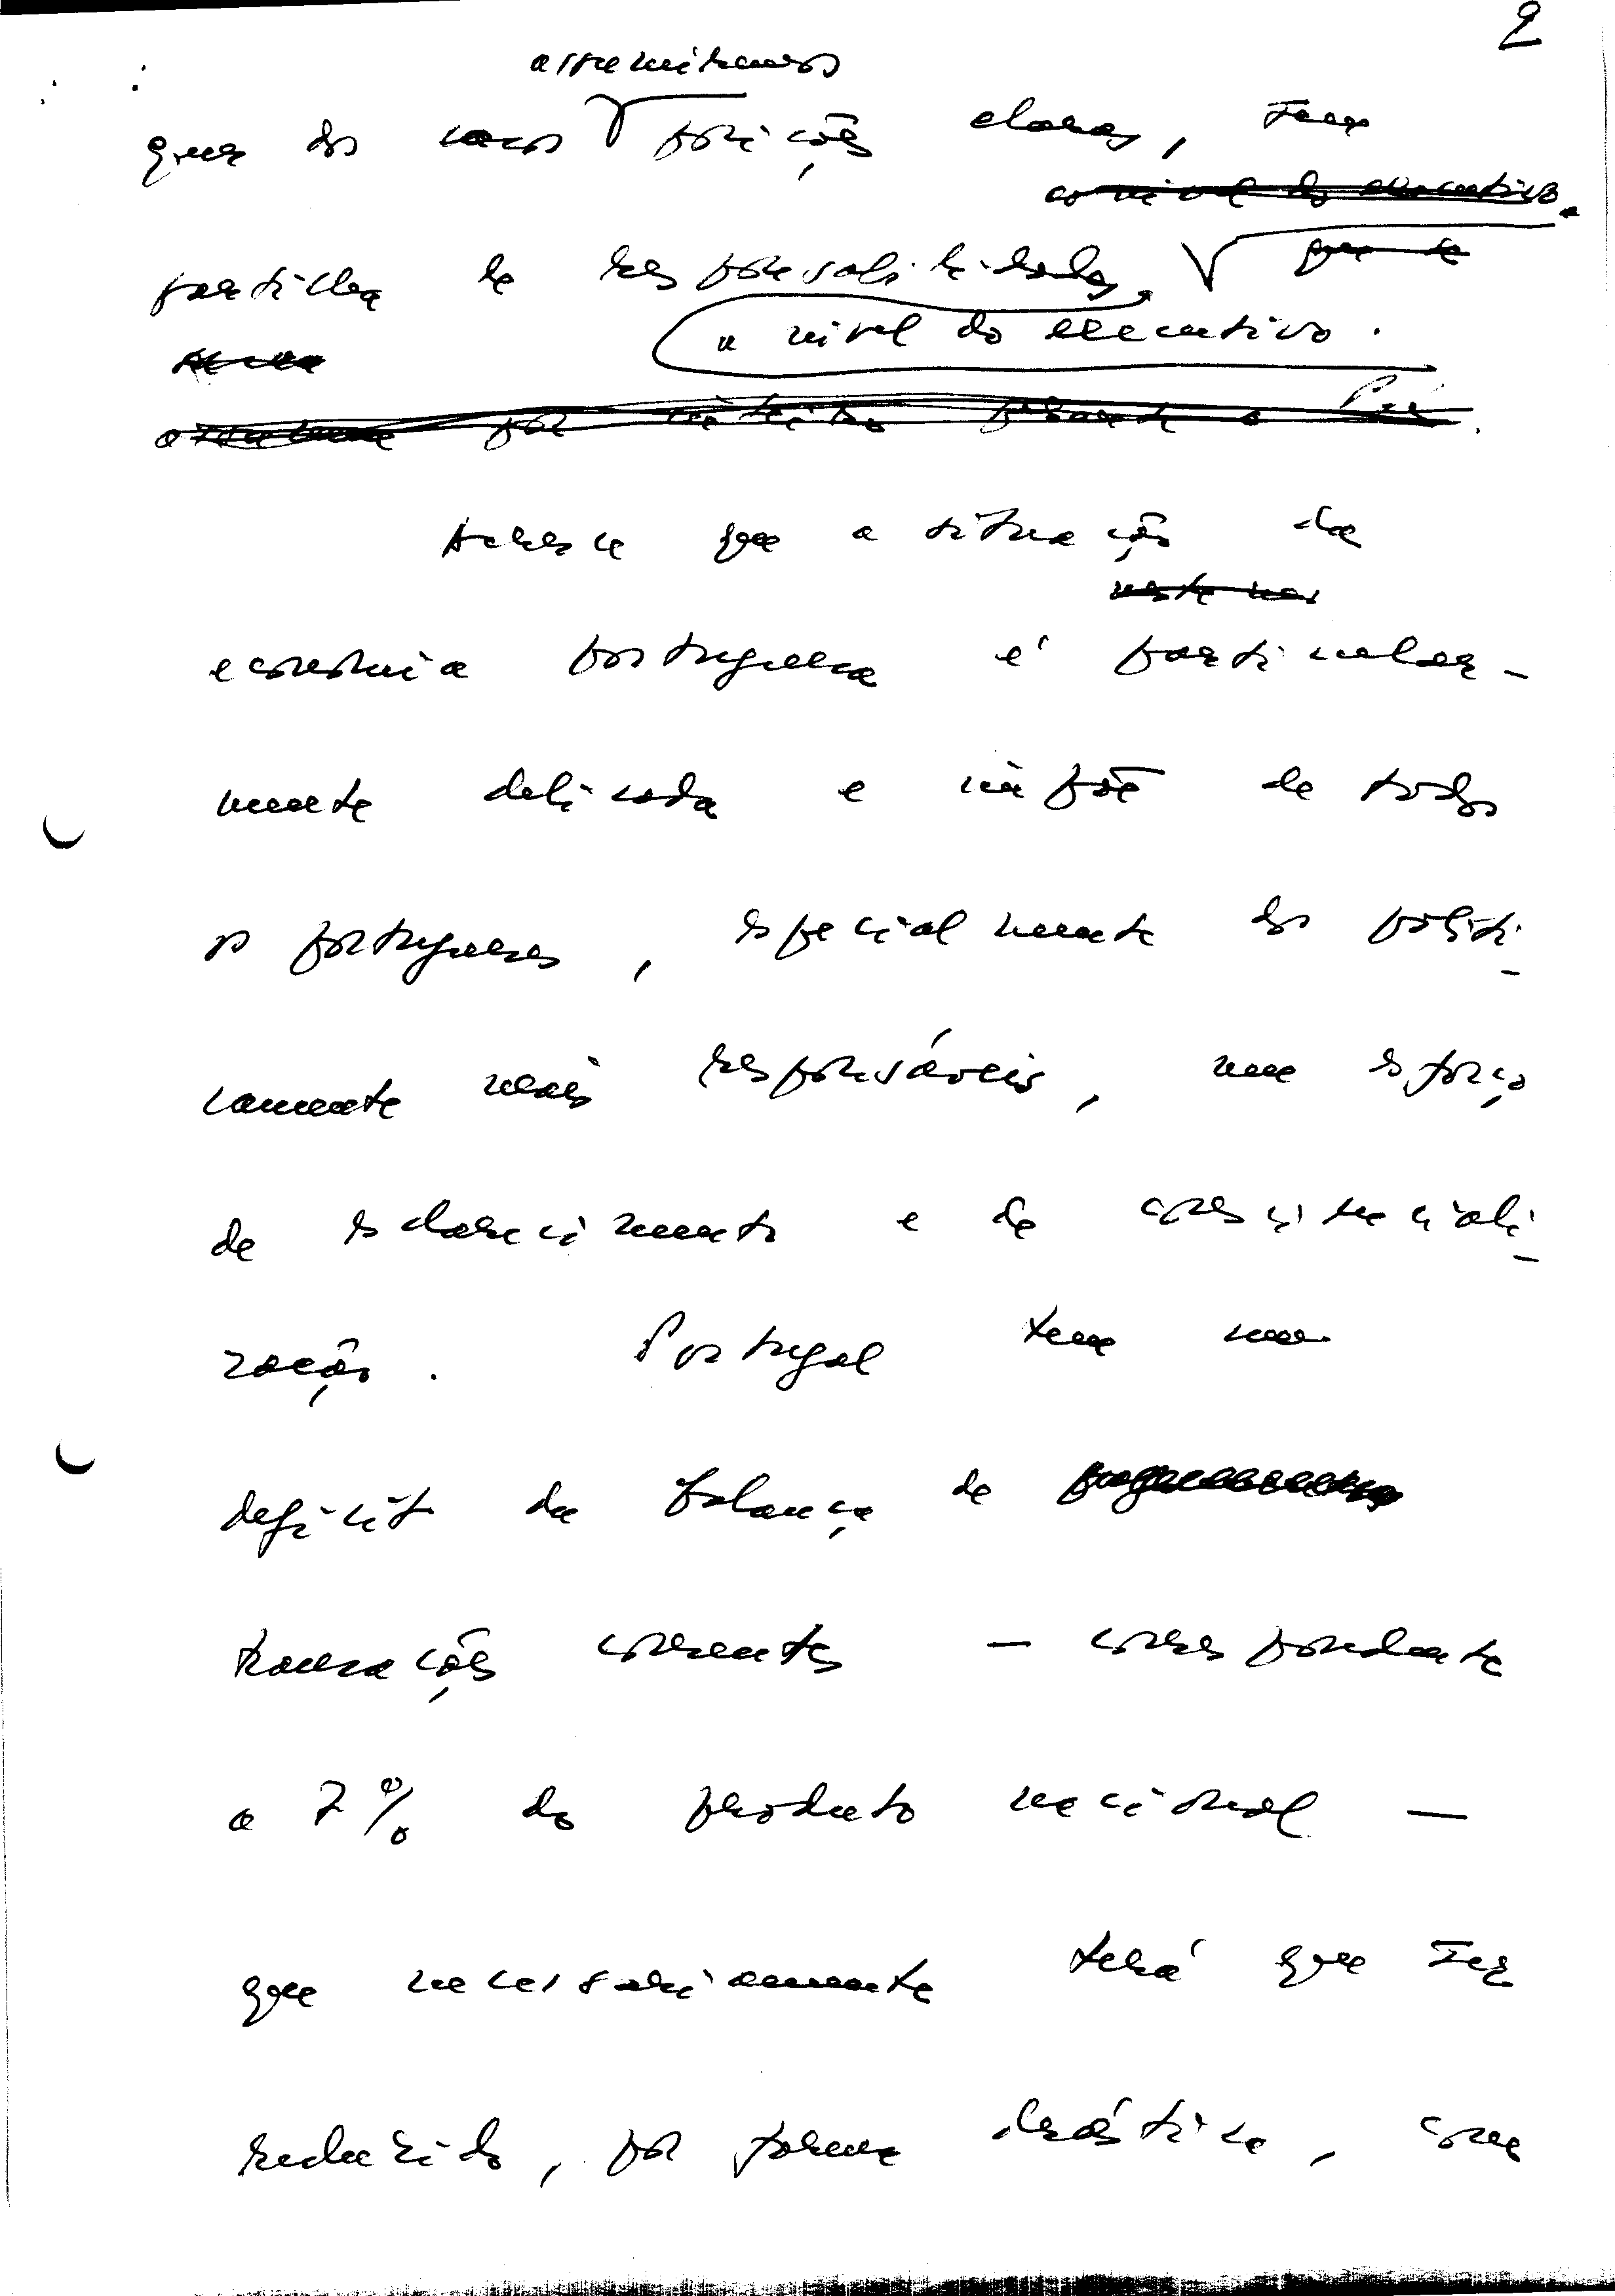 2
assumíamos
quer dos casos posições claras, sem
a nível do executivo.
partilha de responsabilidades, que se
a nível do executivo.
assumem por inteiro perante o País.
Acresce que a situação da
neste
economia portuguesa é particular-
mente delicada e impõe de todos
os portugueses, especialmente dos politi-
camente mais responsáveis, um esforço
de esclarecimento e de conscienciali-
zação. Portugal tem um
deficit da balança de pagamentos
transações correntes — correspondente
a 7% do produto nacional —
que necessariamente terá que ser
reduzido, por forma drástica, com